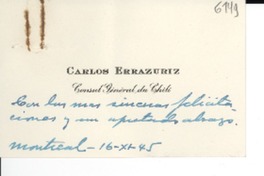 6149
CARLOS ERRAZURIZ
Consul General de Chile
Con las mas sinceras felicita-
ciones y un apretado abrazo.
Montreal - 16-XI-45